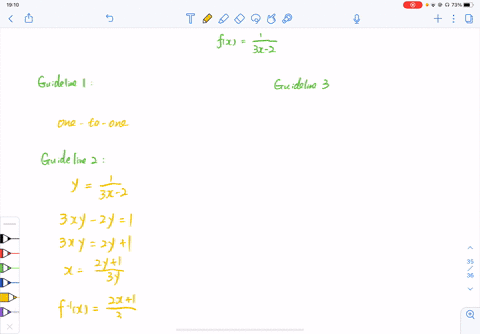 19:10
73%
f(x) = 1/(3x-2)
Guideline 1:
one-to-one
Guideline 2:
y = 1/(3x-2)
3xy-2y=1
3xy=2y+1
x = (2y+1)/(3y)
f⁻¹(x) = (2x+1)/3
Guideline 3
35
/
36